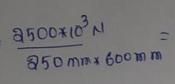 2500*10³ N =
250 mm x 600 mm